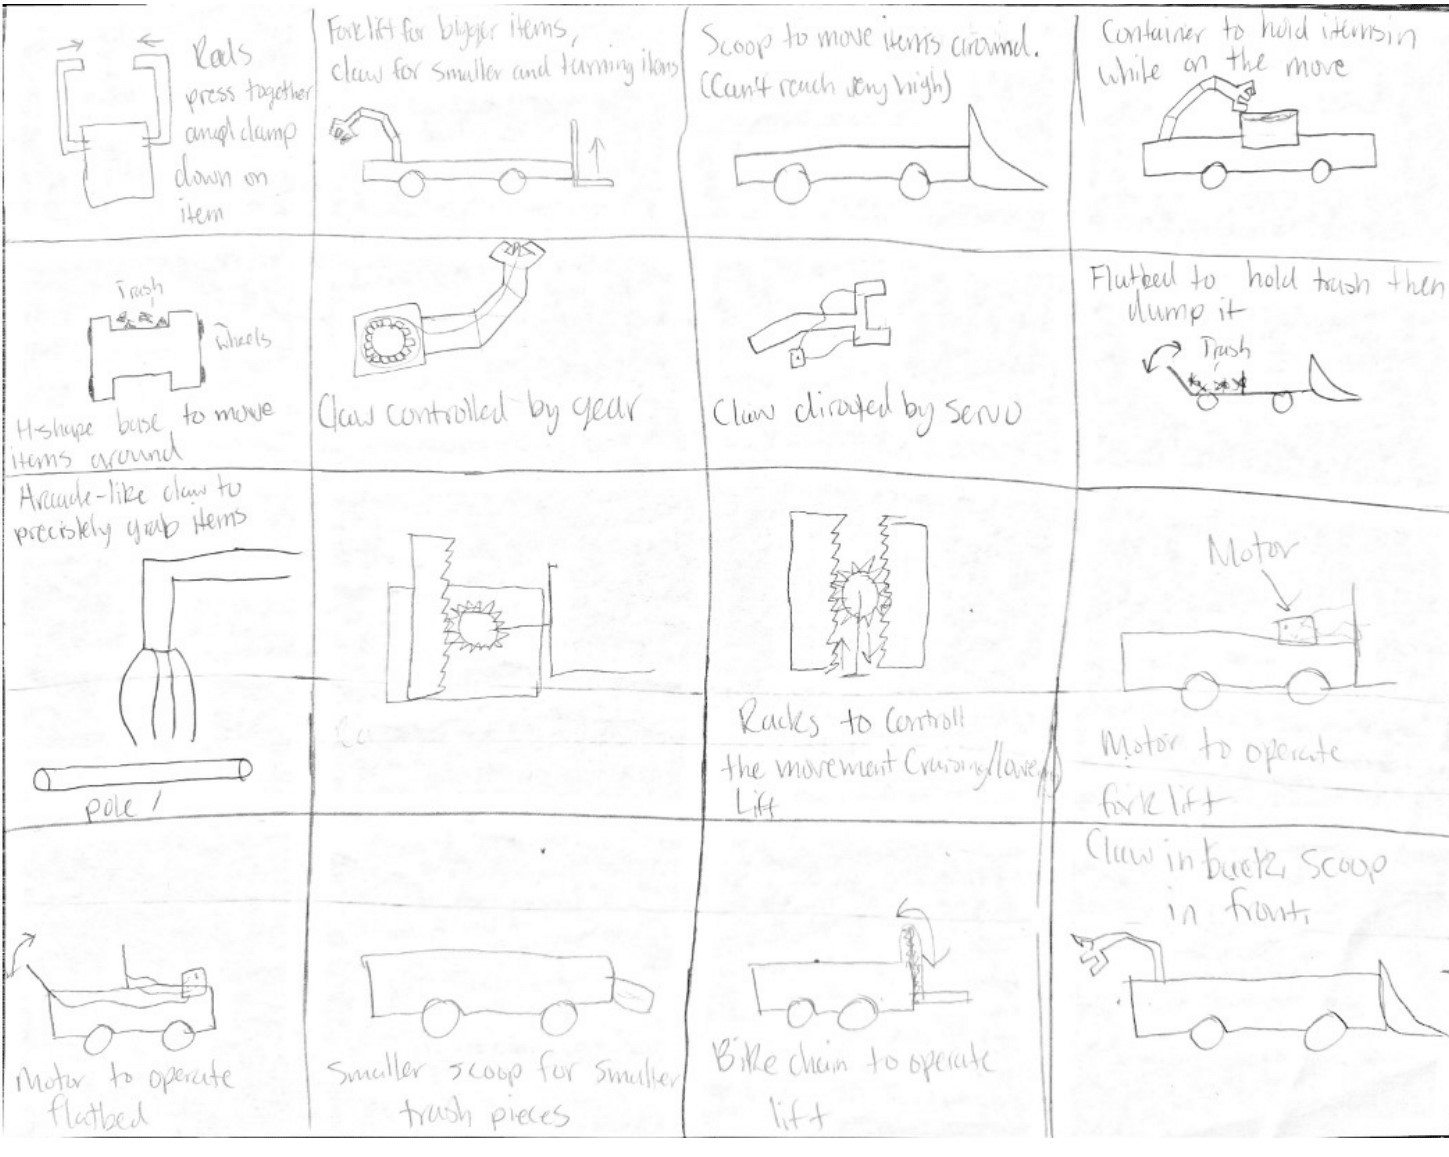 Rods
press together
and clamp
down on
item
Forklift for bigger items,
claw for smaller and turning items
Scoop to move items around.
(Can't reach very high)
Container to hold items in
while on the move
Trash
Wheels
H-shape base to move
items around
Claw controlled by gear
Claw directed by servo
Flatbed to hold trash then
dump it
Trash
Arcade-like claw to
precisely grab items
pole
Racks to controll
the movement
Lift
Motor
Motor to operate
fork lift
Motor to operate
flatbed
Smaller scoop for smaller
trash pieces
Bike chain to operate
lift
Claw in back, scoop
in front,